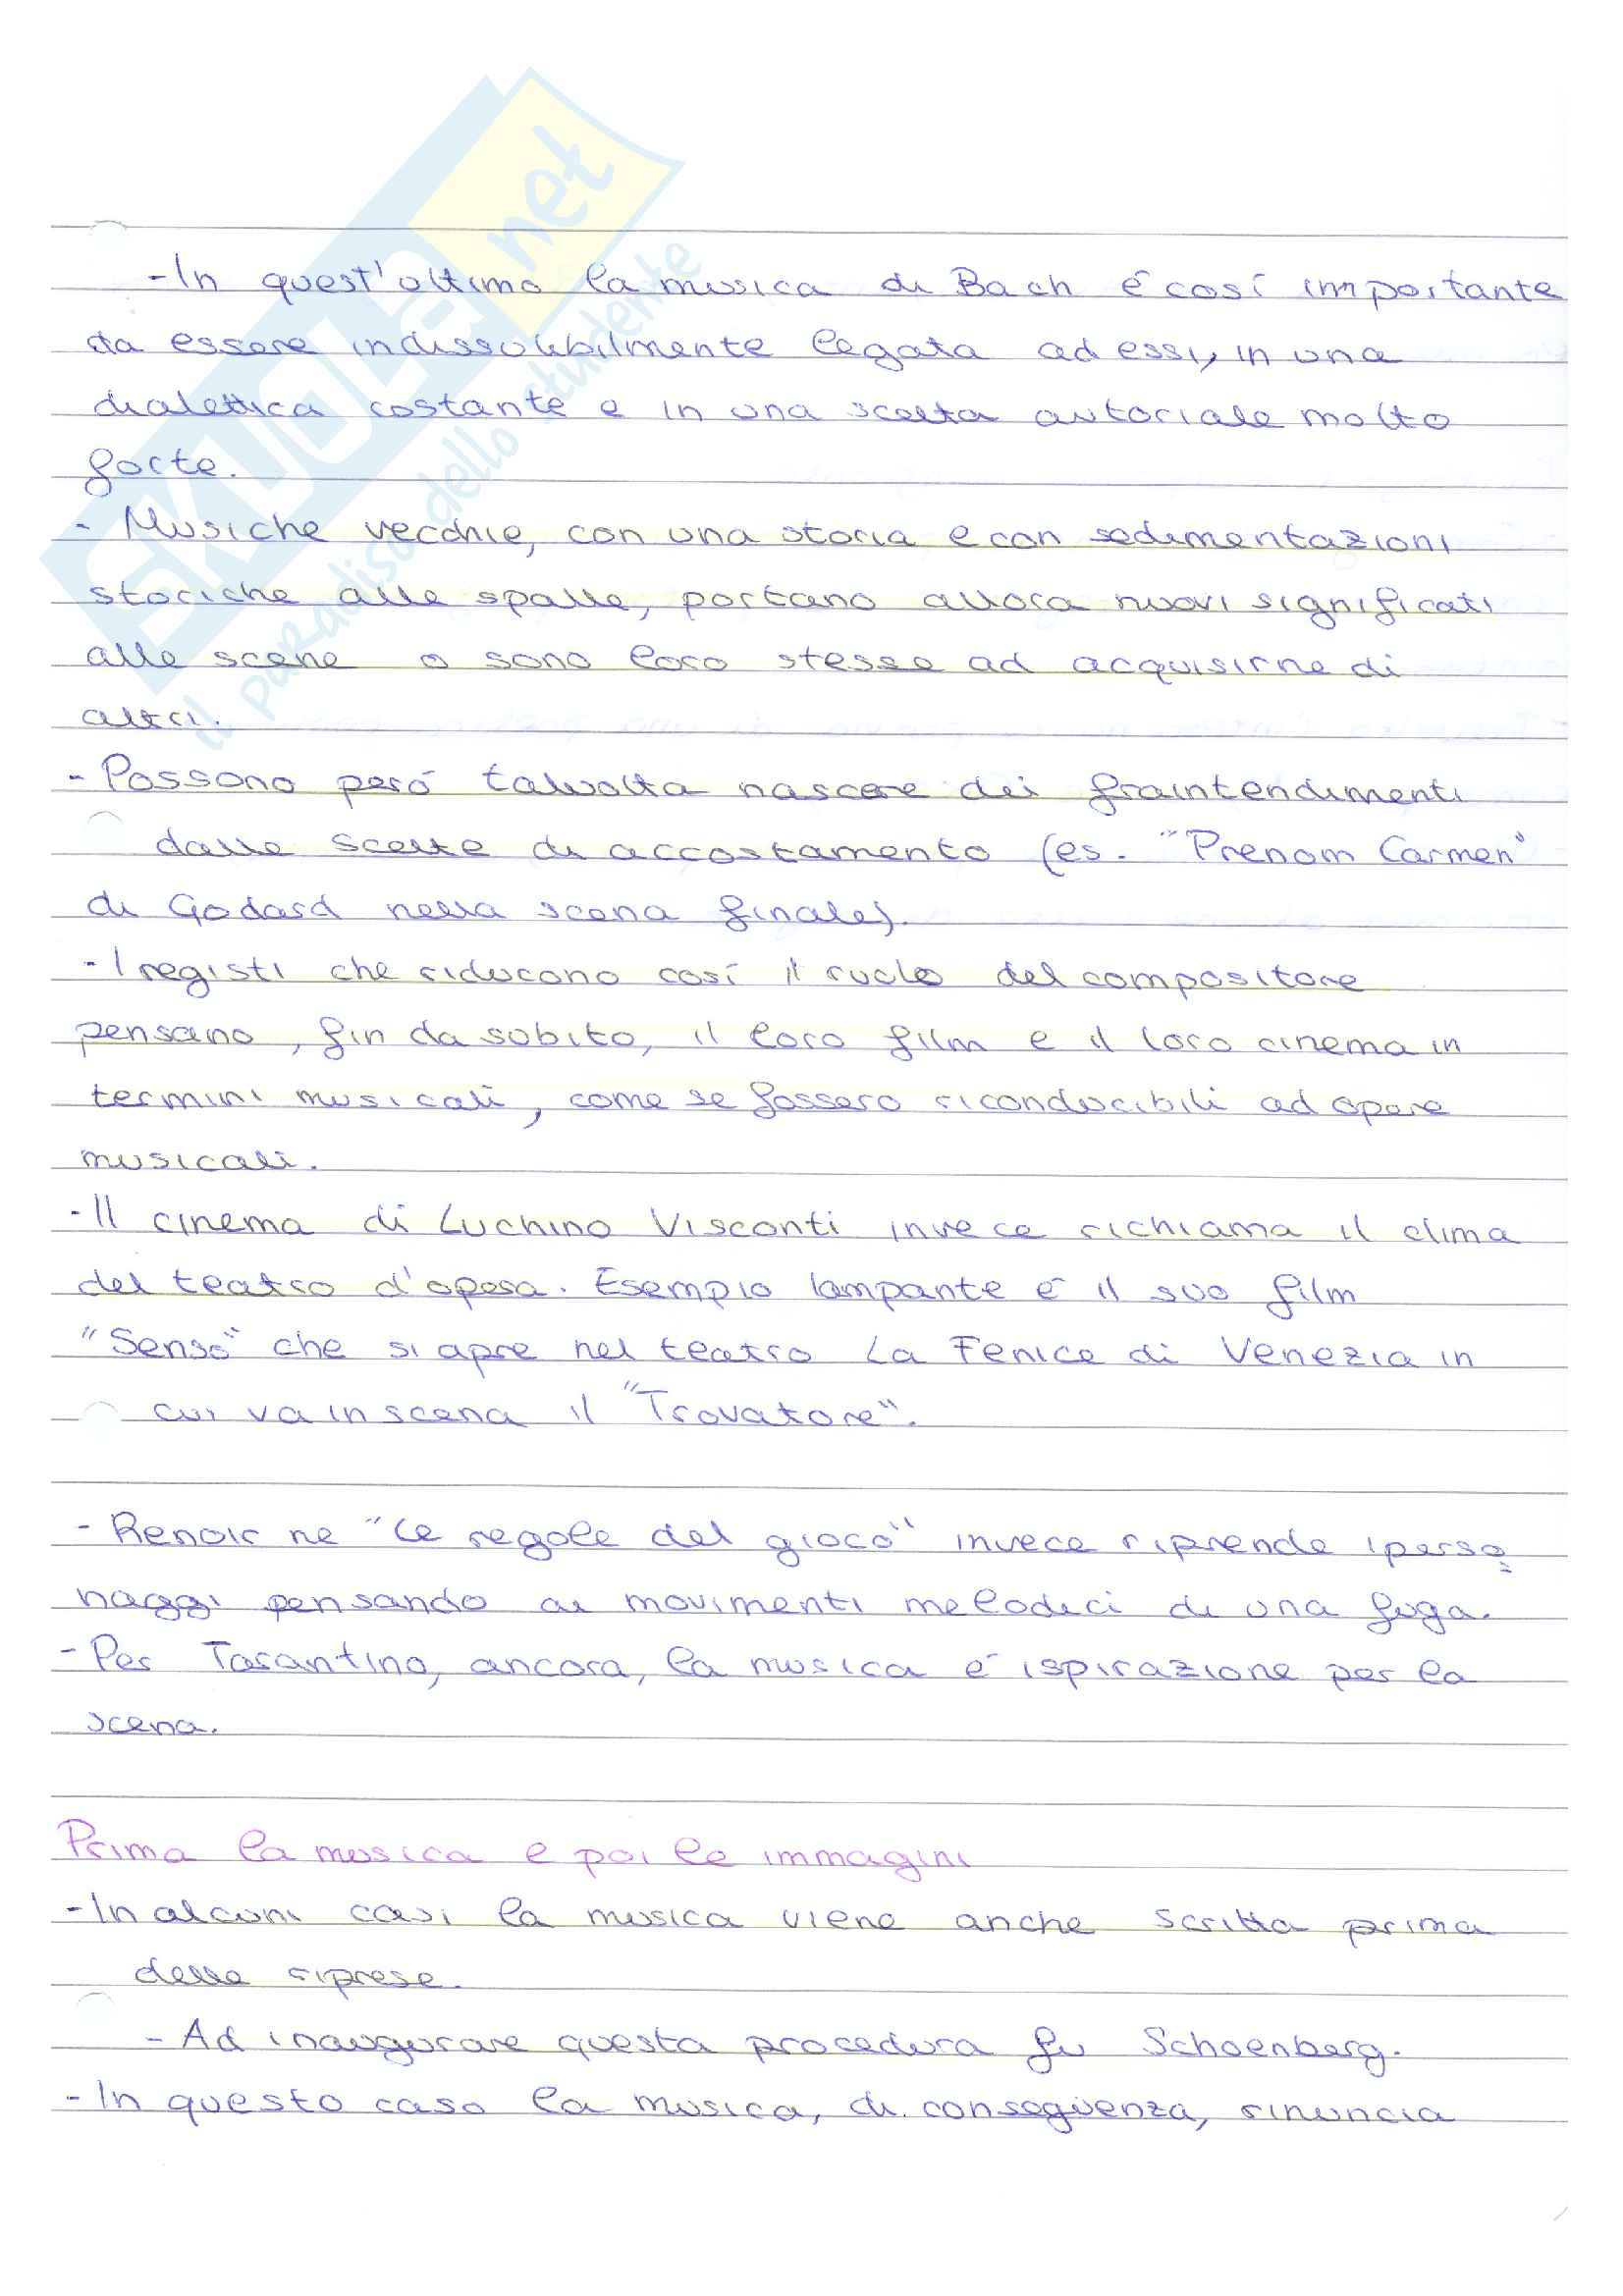 SKUOLA.net
il paradiso dello studente
-In quest'ultimo la musica di Bach é cosí importante
da essere indissolubilmente legata ad essi, in una
dialettica costante e in una scelta autoriale molto
forte.
- Musiche vecchie, con una storia e con sedimentazioni
storiche alle spalle, portano allora nuovi significati
alle scene o sono loro stesse ad acquisirne di
altri.
- Possono peró talvolta nascere dei fraintendimenti
dalle scelte di accostamento (es. "Prenom Carmen"
di Godard nella scena finale).
- I registi che riducono cosí il ruolo del compositore
pensano, fin da subito, il loro film e il loro cinema in
termini musicali, come se fossero riconducibili ad opere
musicali.
- Il cinema di Luchino Visconti invece richiama il clima
del teatro d'opera. Esempio lampante é il suo film
"Senso" che si apre nel teatro La Fenice di Venezia in
cui va in scena il "Trovatore".
- Renoir ne "Le regole del gioco" invece riprende i perso
naggi pensando ai movimenti melodici di una fuga.
- Per Tarantino, ancora, la musica é ispirazione per la
scena.
Prima la musica e poi le immagini
- In alcuni casi la musica viene anche scritta prima
delle riprese.
- Ad inaugurare questa procedura fu Schoenberg.
- In questo caso la musica, di conseguenza, rinuncia